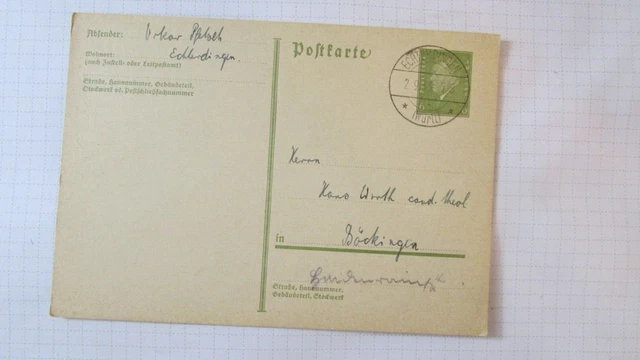 Absender: Oskar
Echterdingen.
Wohnort:
(auch Zustell- oder Leitpostamt)
Straße, Hausnummer, Gebäudeteil,
Stockwerk od. Postschließfachnummer
Postkarte
Herrn
Hans Wirth cand. theol
in Böckingen
Straße, Hausnummer,
Gebäudeteil, Stockwerk